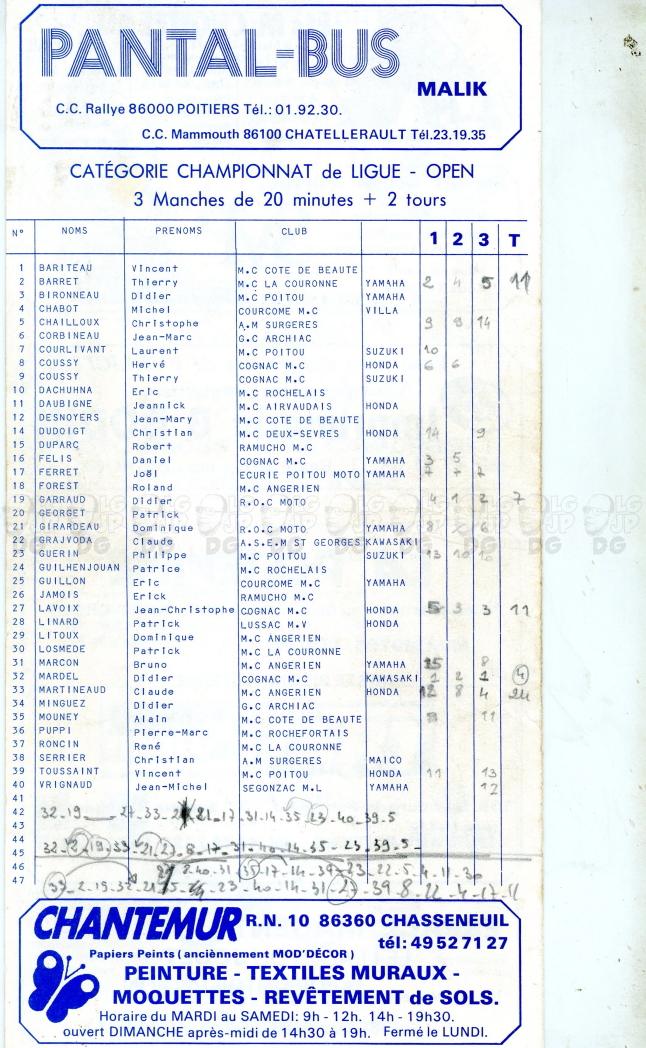 PANTAL-BUS
MALIK
C.C. Rallye 86000 POITIERS Tél.: 01.92.30.
C.C. Mammouth 86100 CHATELLERAULT Tél.23.19.35
CATÉGORIE CHAMPIONNAT de LIGUE - OPEN
3 Manches de 20 minutes + 2 tours
N° NOMS PRENOMS CLUB 1 2 3 T
1 BARITEAU Vincent M.C COTE DE BEAUTE
2 BARRET Thierry M.C LA COURONNE YAMAHA 2 4 5 11
3 BIRONNEAU Didier M.C POITOU YAMAHA
4 CHABOT Michel COURCOME M.C VILLA
5 CHAILLOUX Christophe A.M SURGERES 9 9 14
6 CORBINEAU Jean-Marc G.C ARCHIAC
7 COURLIVANT Laurent M.C POITOU SUZUKI 10
8 COUSSY Hervé COGNAC M.C HONDA 6 6
9 COUSSY Thierry COGNAC M.C SUZUKI
10 DACHUHNA Eric M.C ROCHELAIS
11 DAUBIGNE Jeannick M.C AIRVAUDAIS HONDA
12 DESNOYERS Jean-Mary M.C COTE DE BEAUTE
14 DUDOIGT Christian M.C DEUX-SEVRES HONDA 14 9
15 DUPARC Robert RAMUCHO M.C
16 FELIS Daniel COGNAC M.C YAMAHA 3 5
17 FERRET Joël ECURIE POITOU MOTO YAMAHA 7 7 7
18 FOREST Roland M.C ANGERIEN
19 GARRAUD Didier R.O.C MOTO 4 1 2 7
20 GEORGET Patrick
21 GIRARDEAU Dominique R.O.C MOTO YAMAHA 8 6
22 GRAJVODA Claude A.S.E.M ST GEORGES KAWASAKI
23 GUERIN Philippe M.C POITOU SUZUKI 13 10 10
24 GUILHENJOUAN Patrice M.C ROCHELAIS
25 GUILLON Eric COURCOME M.C YAMAHA
26 JAMOIS Erick RAMUCHO M.C
27 LAVOIX Jean-Christophe COGNAC M.C HONDA 5 3 3 11
28 LINARD Patrick LUSSAC M.V HONDA
29 LITOUX Dominique M.C ANGERIEN
30 LOSMEDE Patrick M.C LA COURONNE
31 MARCON Bruno M.C ANGERIEN YAMAHA 15 8
32 MARDEL Didier COGNAC M.C KAWASAKI 1 2 1 4
33 MARTINEAUD Claude M.C ANGERIEN HONDA 12 8 4 24
34 MINGUEZ Didier G.C ARCHIAC
35 MOUNEY Alain M.C COTE DE BEAUTE 11
36 PUPPI Pierre-Marc M.C ROCHEFORTAIS
37 RONCIN René M.C LA COURONNE
38 SERRIER Christian A.M SURGERES MAICO
39 TOUSSAINT Vincent M.C POITOU HONDA 11 13
40 VRIGNAUD Jean-Michel SEGONZAC M.L YAMAHA 12
41
42 32-19 27-33-2 21-17-31-14-35-23-40-39-5
43
44
45 32-2-19-33-21-27-8-17-31-40-14-35-23-39-5-
46 8-40-31 35-17-14-39-23-22-5-4-11-30
47 33-2-19-32-21 23-40-14-31-27-39-8-22-4-17-11
CHANTEMUR R.N. 10 86360 CHASSENEUIL
tél: 49 52 71 27
Papiers Peints (anciènnement MOD'DÉCOR)
PEINTURE - TEXTILES MURAUX -
MOQUETTES - REVÊTEMENT de SOLS.
Horaire du MARDI au SAMEDI: 9h - 12h. 14h - 19h30.
ouvert DIMANCHE après-midi de 14h30 à 19h. Fermé le LUNDI.